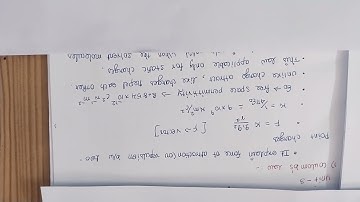 Unit - 3
1) Coulomb's law :-
• It explain force of attraction & repulsion b/w two
point charges
• F = K q₁q₂/r² [F → vector]
K = 1/4πε₀ = 9 × 10⁹ Nm²/C²
ε₀ → free space permittivity → 8.854 × 10⁻¹² C² N⁻¹ m⁻²
• unlike charge attract, like charges repel each other
• This law applicable only for static charges.